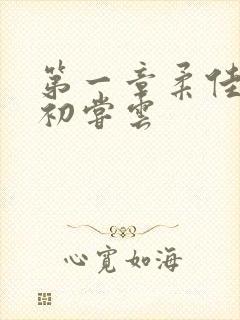 第一章柔佳
初尝云
心宽如海